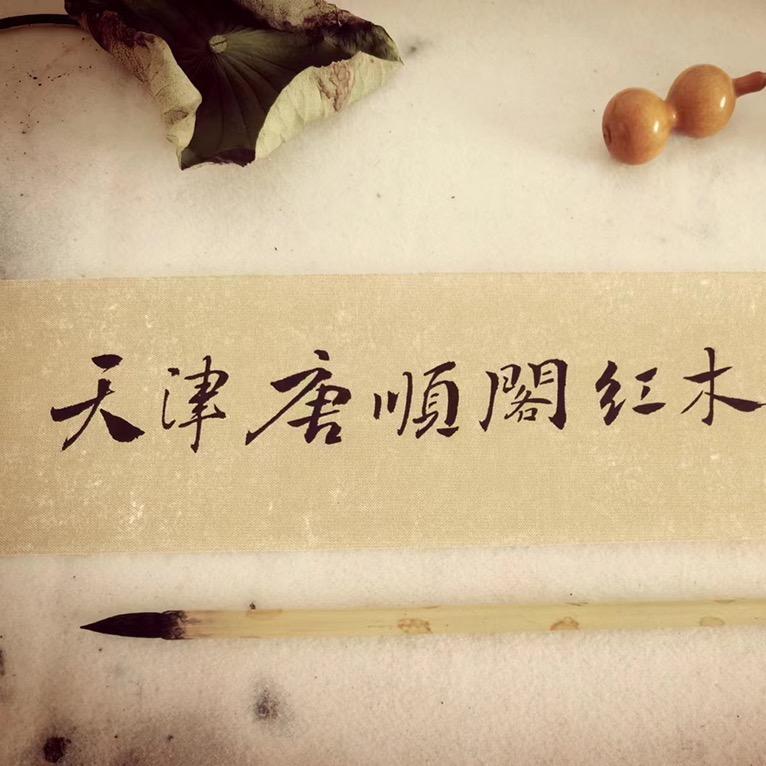 天津唐順閣红木